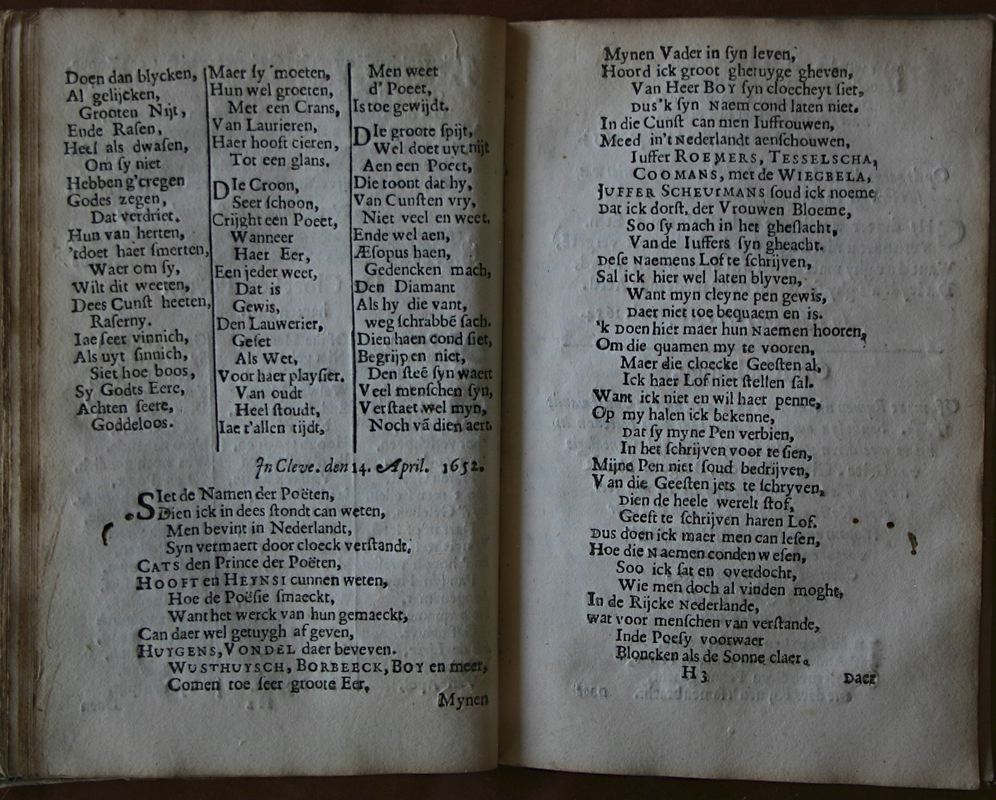 Doen dan blycken,
Al gelijcken,
Grooten Nijt,
Ende Rasen,
Heel als dwasen,
Om sy niet
Hebben g'cregen
Godes zegen,
Dat verdriet.
Hun van herten,
'tdoet haer smerten,
Waer om sy,
Wilt dit weeten,
Dees Cunst heeten,
Raserny.
Iae seer vinnich,
Als uyt sinnich,
Siet hoe boos,
Sy Godts Eere,
Achten seere,
Goddeloos.
Maer sy moeten,
Hun wel groeten,
Met een Crans,
Van Laurieren,
Haer hooft cieren,
Tot een glans.
DIe Croon,
Seer schoon,
Crijght een Poeet,
Wanneer
Haer Eer,
Een jeder weet,
Dat is
Gewis,
Den Lauwerier,
Geset
Als Wet,
Voor haer playsier.
Van oudt
Heel stoudt,
Iae t'allen tijdt,
Men weet
d' Poeet,
Is toe gewijdt.
DIe groote spijt,
Wel doet uyt nijt
Aen een Poeet,
Die toont dat hy,
Van Cunsten vry,
Niet veel en weet.
Ende wel aen,
Æsopus haen,
Gedencken mach,
Den Diamant
Als hy die vant,
weg schrabbē sach.
Dien haen cond siet,
Begrijpen niet,
Den steē syn waert
Veel menschen syn,
Verstaet wel myn,
Noch vā dien aert.
In Cleve. den 14. April. 1652.
SIet de Namen der Poëten,
Dien ick in dees stondt can weten,
Men bevint in Nederlandt,
Syn vermaert door cloeck verstandt,
CATS den Prince der Poëten,
HOOFT en HEYNSI cunnen weten,
Hoe de Poësie smaeckt,
Want het werck van hun gemaeckt,
Can daer wel getuygh af geven,
HUYGENS, VONDEL daer beveven.
WUSTHUYSCH, BORBEECK, BOY en meer,
Comen toe seer groote Eer,
Mynen
Mynen Vader in syn leven,
Hoord ick groot ghetuyge gheven,
Van Heer BOY syn cloecheyt siet,
Dus'k syn Naem cond laten niet.
In die Cunst can men Iuffrouwen,
Meed in't Nederlandt aenschouwen,
Iuffer ROEMERS, TESSELSCHA,
COOMANS, met de WIEGBELA,
JUFFER SCHEURMANS soud ick noeme
Dat ick dorst, der Vrouwen Bloeme,
Soo sy mach in het gheslacht,
Van de Iuffers syn gheacht.
Dese Naemens Lof te schrijven,
Sal ick hier wel laten blyven,
Want myn cleyne pen gewis,
Daer niet toe bequaem en is.
'k Doen hier maer hun Naemen hooren,
Om die quamen my te vooren,
Maer die cloecke Geesten al,
Ick haer Lof niet stellen sal.
Want ick niet en wil haer penne,
Op myn halen ick bekenne,
Dat sy myne Pen verbien,
In het schrijven voor te sien,
Mijne Pen niet soud bedrijven,
Van die Geesten jets te schryven,
Dien de heele werelt stof,
Geeft te schrijven haren Lof.
Dus doen ick maer men can lesen,
Hoe die Naemen conden wesen,
Soo ick sat en overdocht,
Wie men doch al vinden moght,
In de Rijcke Nederlande,
wat voor menschen van verstande,
Inde Poesy voorwaer
Bloncken als de Sonne claer.
H 3
Daer